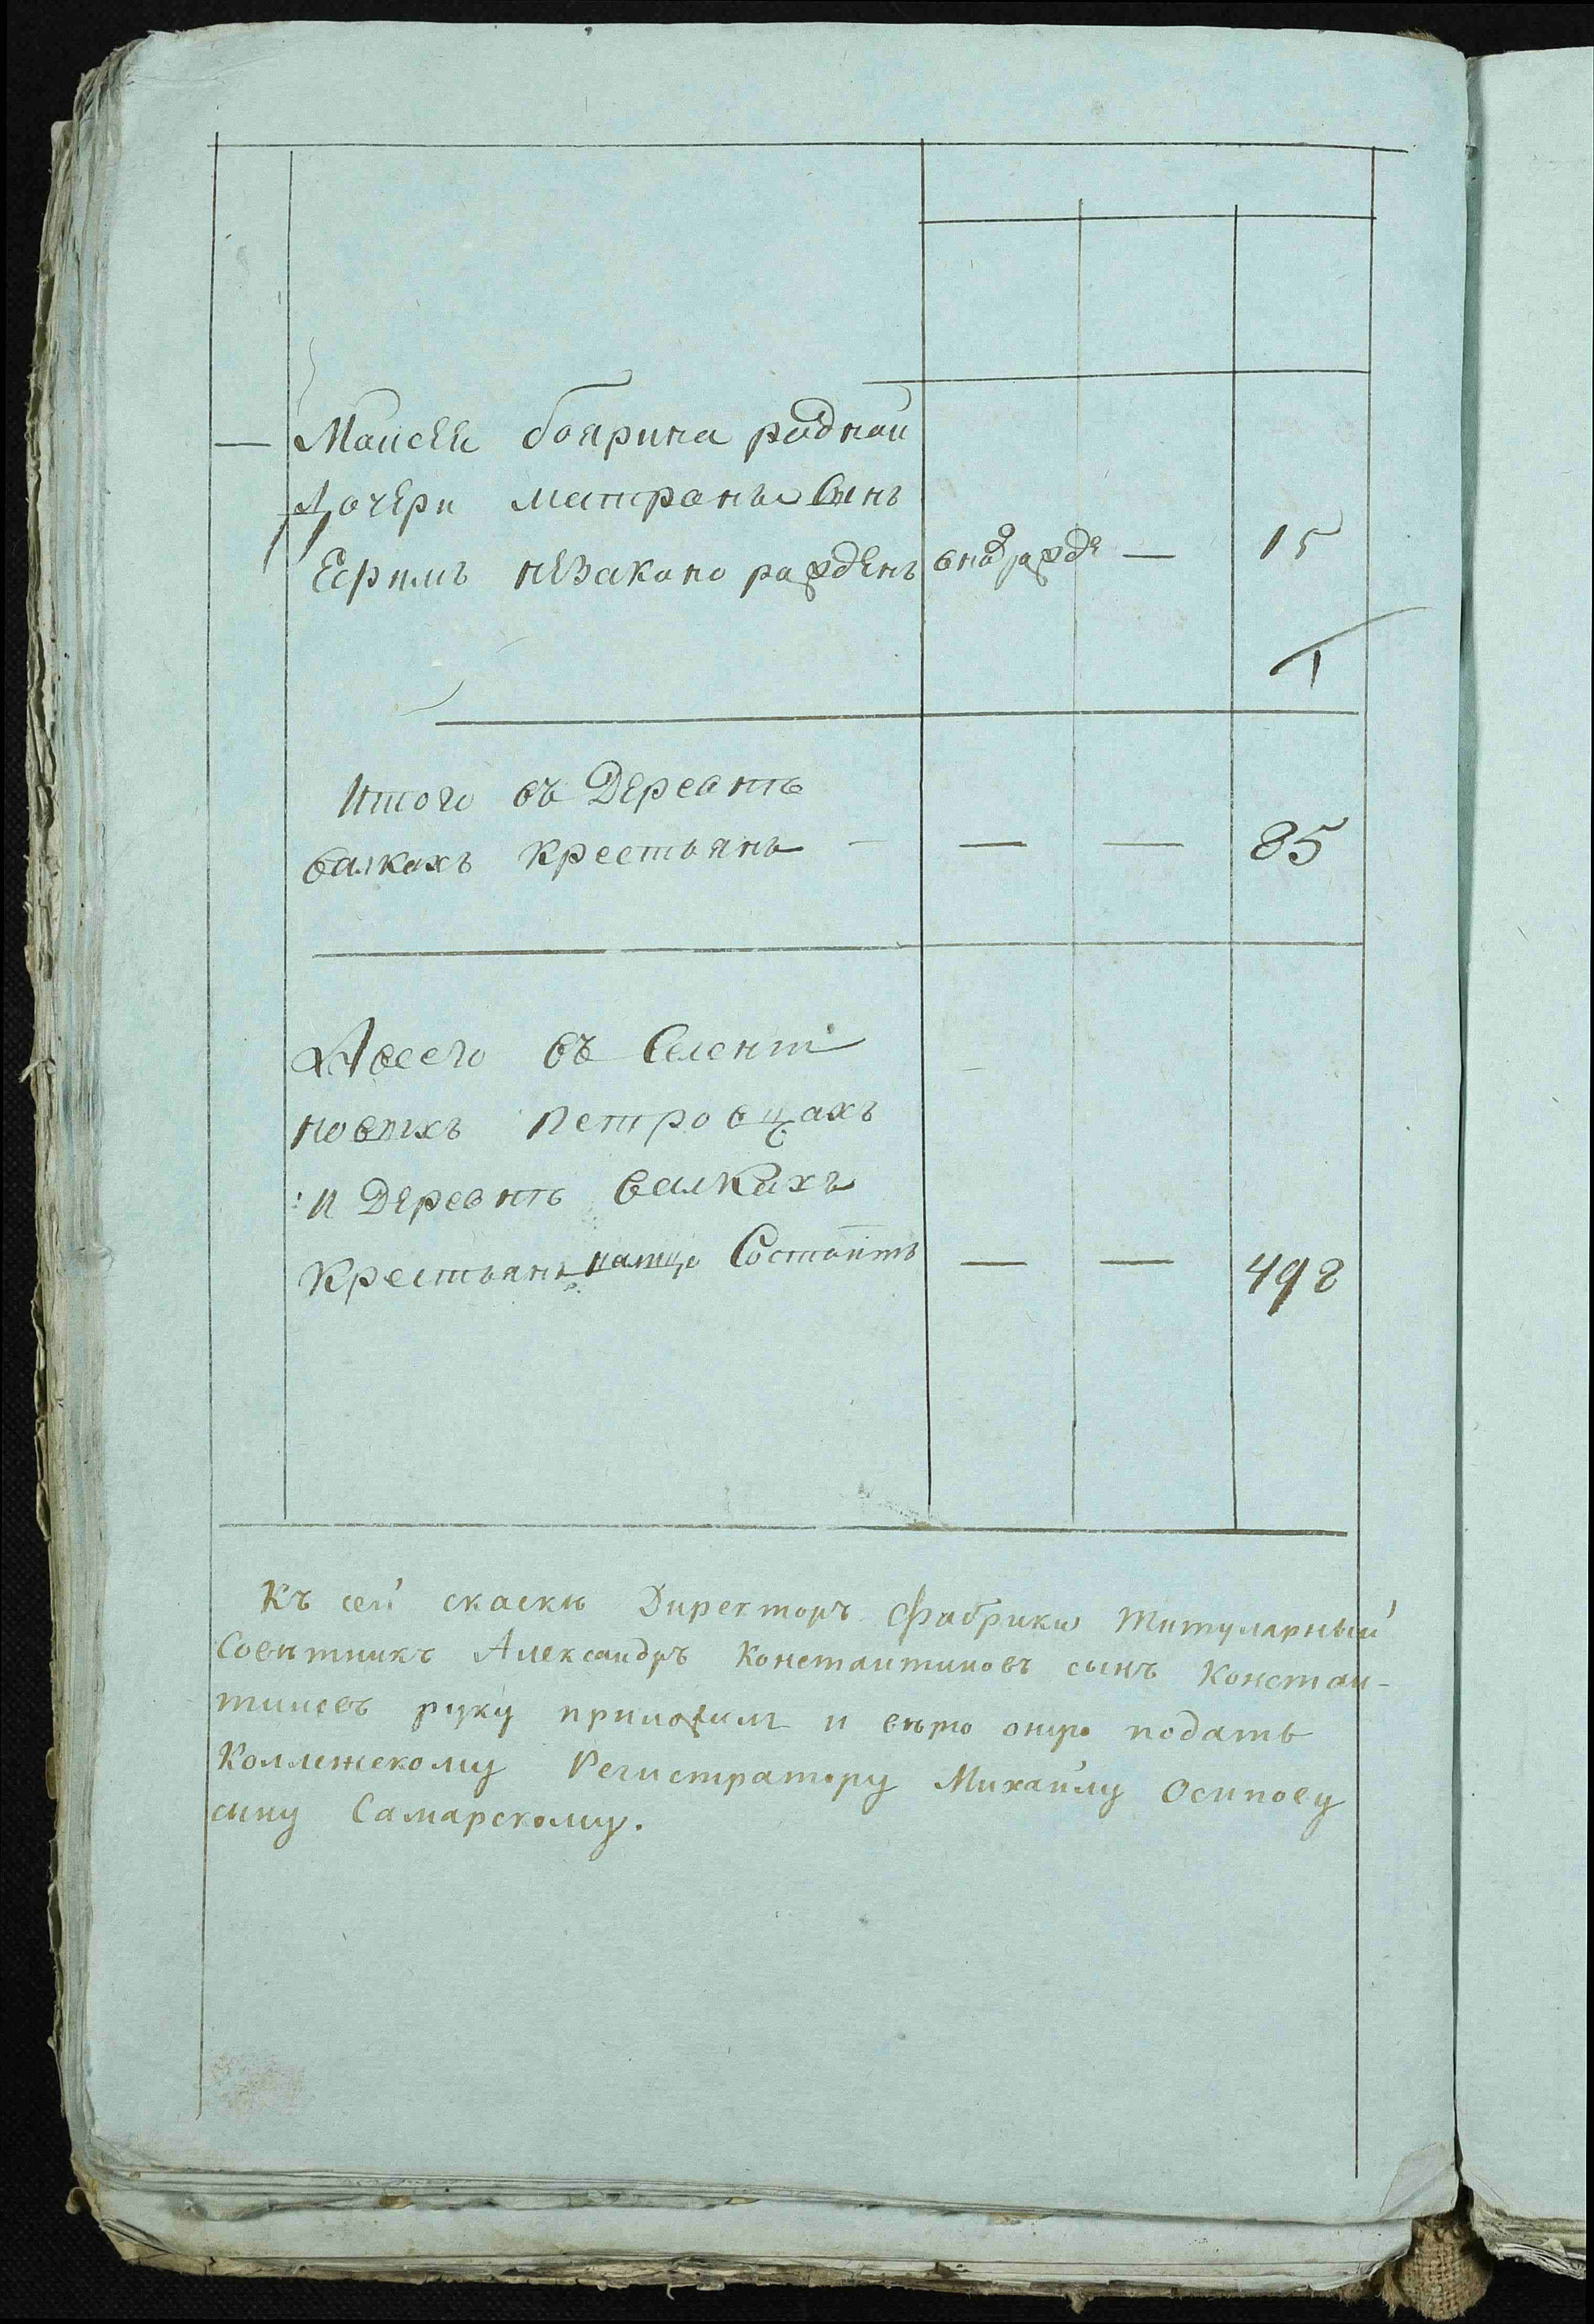 — Маисеи боярина радной
Дочери матроны Сынъ
Ефримъ незаконо рожденъ вновь рожде — 15
1
Итого въ Деревнѣ
валкахъ крестьянъ — — — 85
А всего въ Селенiи
новыхъ Петровцахъ
: и Деревнѣ валкахъ
крестьянъ налицо Состоитъ — — 498
Къ сей скаски Директоръ Фабрики Титулярный
Совѣтникъ Александръ Константиновъ сынъ Констан-
тиновъ руку приложилъ и вѣрю оную подать
Коллежскому Регистратору Михайлу Осипову
сыну Самарскому.